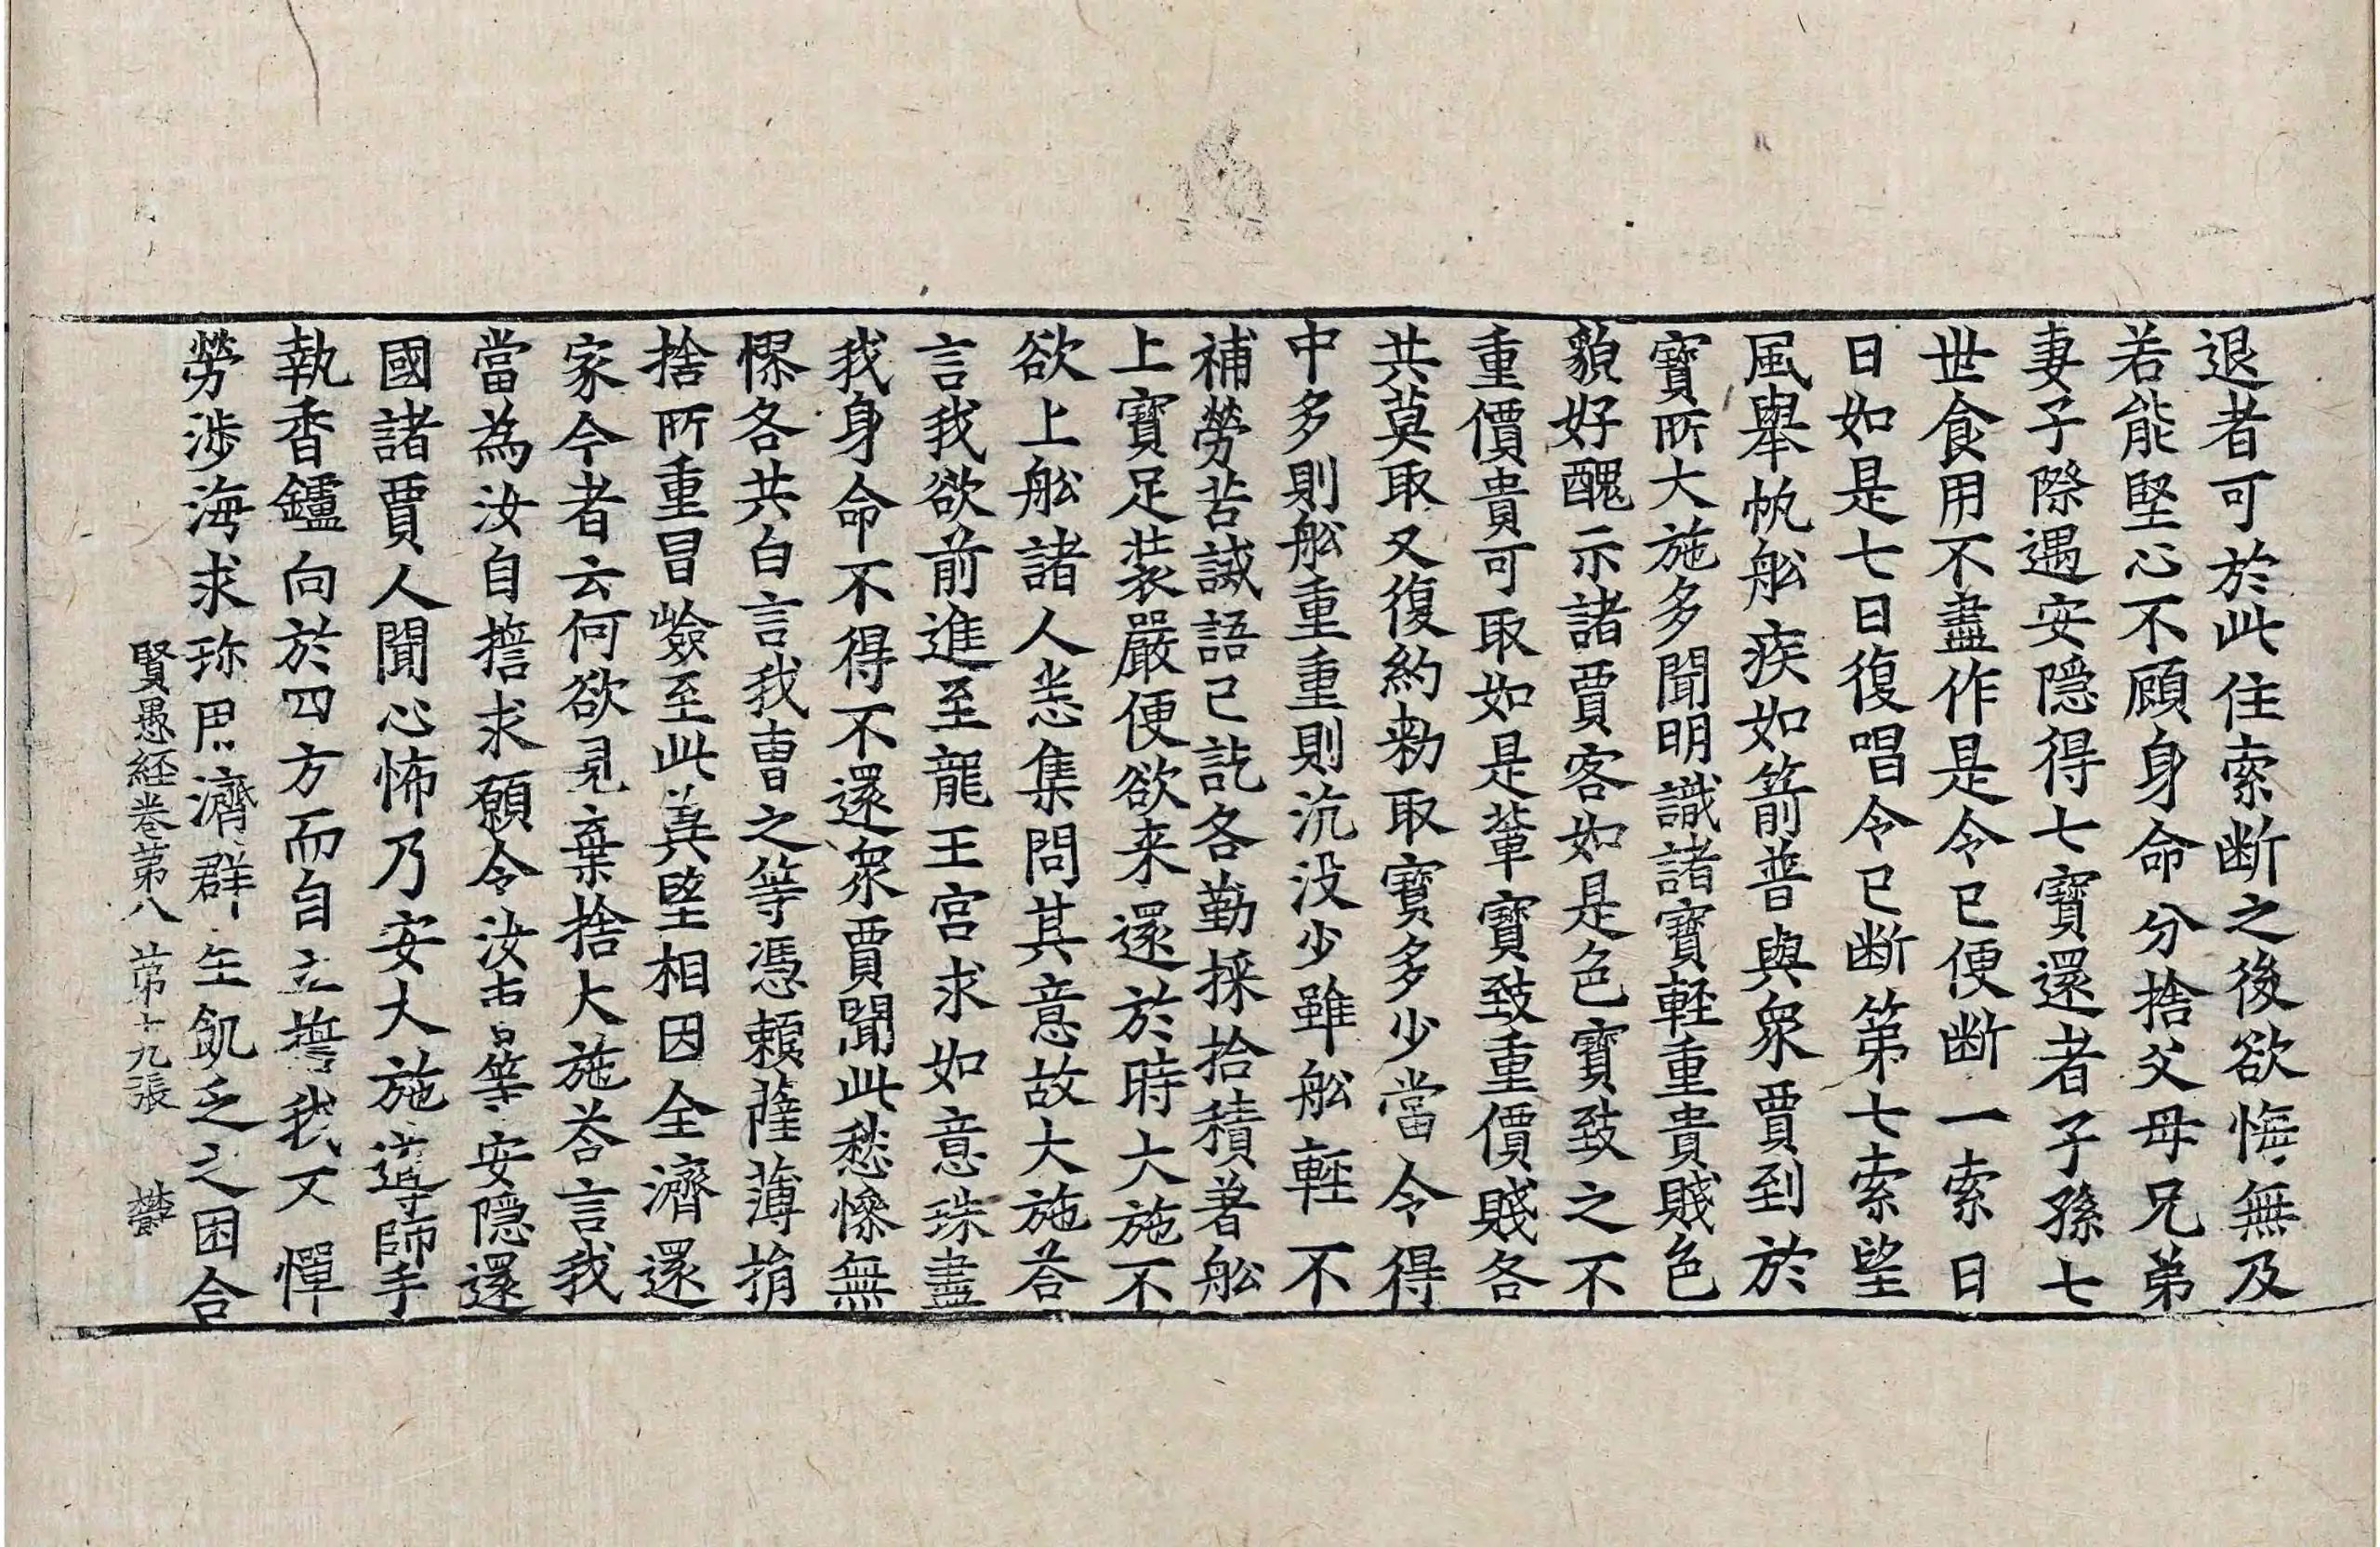 退者可於此住索断之後欲悔無及
若能堅心不顧身命分捨父母兄弟
妻子際遇安隱得七寶還者子孫七
世食用不盡作是令已便断一索日
日如是七日復唱令已断第七索望
風舉帆舩疾如箭普與衆賈到於
寶所大施多聞明識諸寶輕重貴賤色
貌好醜示諸賈客如是色寶致之不
重價貴可取如是輩寶致重價賤各
共莫取又復約勑取寶多少當令得
中多則舩重重則沉没少雖舩輕不
補勞苦誡語已訖各勤採拾積著舩
上寶足裝嚴便欲来還於時大施不
欲上舩諸人悉集問其意故大施荅
言我欲前進至龍王宮求如意珠盡
我身命不得不還衆賈聞此愁慘無
憀各共白言我曹之等憑賴薩薄捐
捨所重冒嶮至此兾望相因全濟還
家今者云何欲見棄捨大施荅言我
當為汝自擔求願令汝曹等安隱還
國諸賈人聞心怖乃安大施導師手
執香鑪向於四方而自立誓我不憚
勞涉海求珎思濟群生飢乏之困合
賢愚経卷第八 第十九張